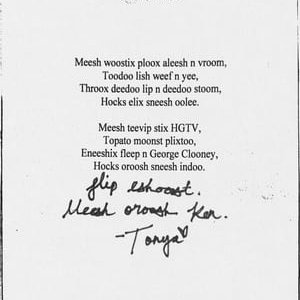 Meesh woostix ploox aleesh n vroom,
Toodoo lish weef n yee,
Throox deedoo lip n deedoo stoom,
Hocks elix sneesh oolee.
Meesh teevip stix HGTV,
Topato moonst plixtoo,
Eneeshix fleep n George Clooney,
Hocks oroosh sneesh indoo.
flip eshoost.
Meesh oroosh Ken.
-Tonya